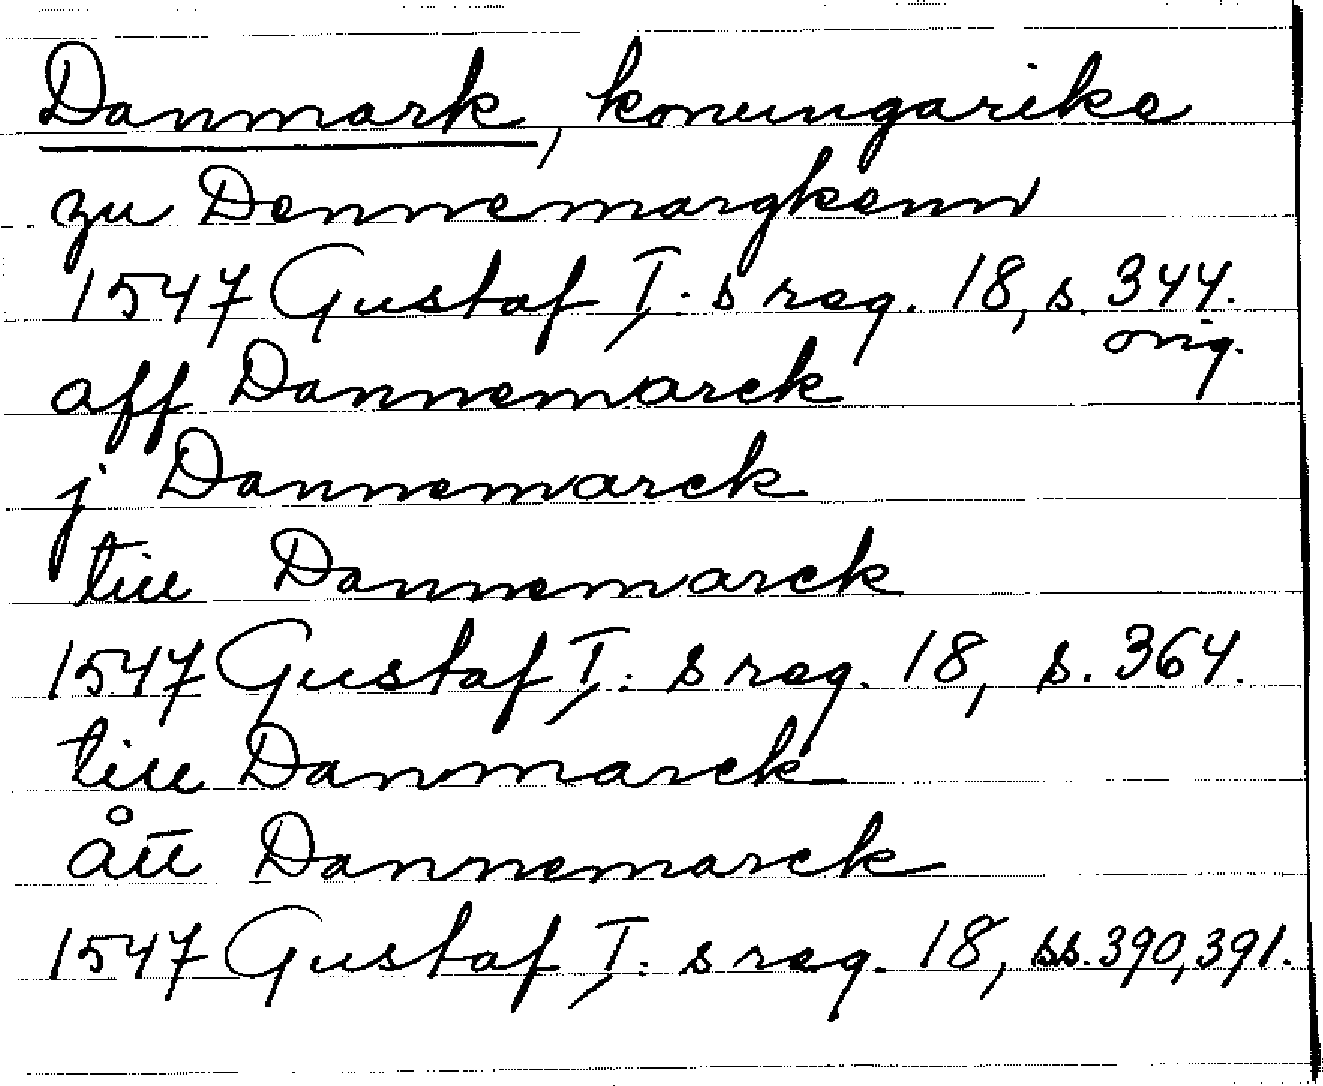 Danmark, konungarike
zu Dennemargkenn
1547 Gustaf I: s reg. 18, s. 344.
orig.
aff Dannemarck
j Dannemarck
till Dannemarck
1547 Gustaf I: s reg. 18, s. 364.
till Danmarck
ått Dannemarck
1547 Gustaf I: s reg. 18, ss. 390, 391.